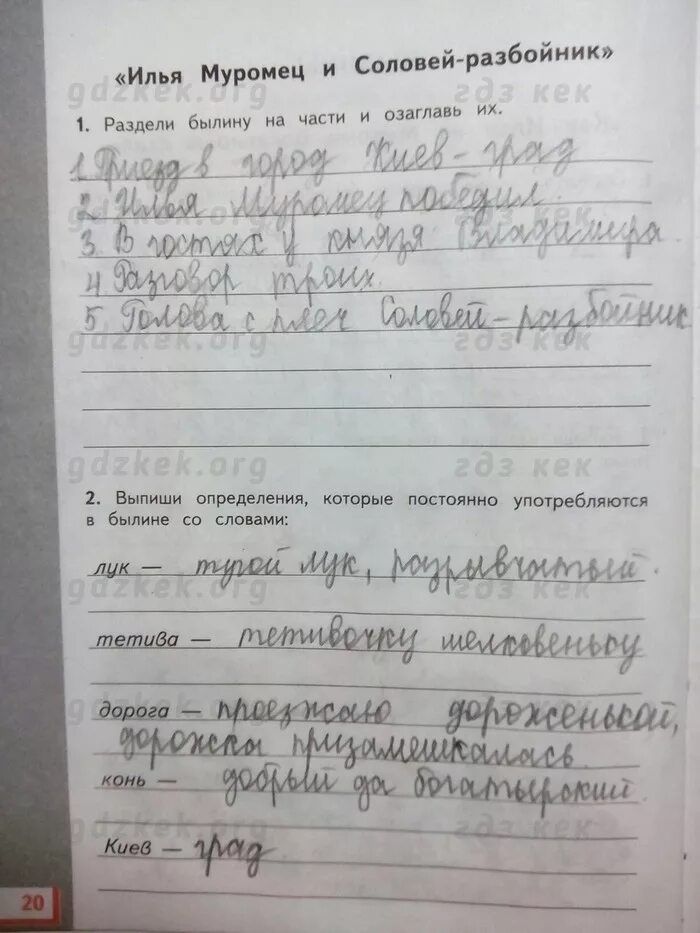 «Илья Муромец и Соловей-разбойник»
gdzkek.org гдз кек
1. Раздели былину на части и озаглавь их.
1 Приезд в город Киев-град
gdzkek.org гдз кек
2 Илья Муромец победил.
3. В гостях у князя Владимира.
4 Разговор троих.
5. Голова с плеч Соловей-разбойник
gdzkek.org гдз кек
gdzkek.org гдз кек
2. Выпиши определения, которые постоянно употребляются
в былине со словами:
лук — тугой лук, разрывчатый.
gdzkek.org гдз кек
тетива — тетивочку шелковеньку
дорога — проезжаю дороженькой,
gdzkek.org гдз кек
дорожка призамешкалась.
конь — добрый да богатырский.
gdzkek.org гдз кек
Киев — град
20